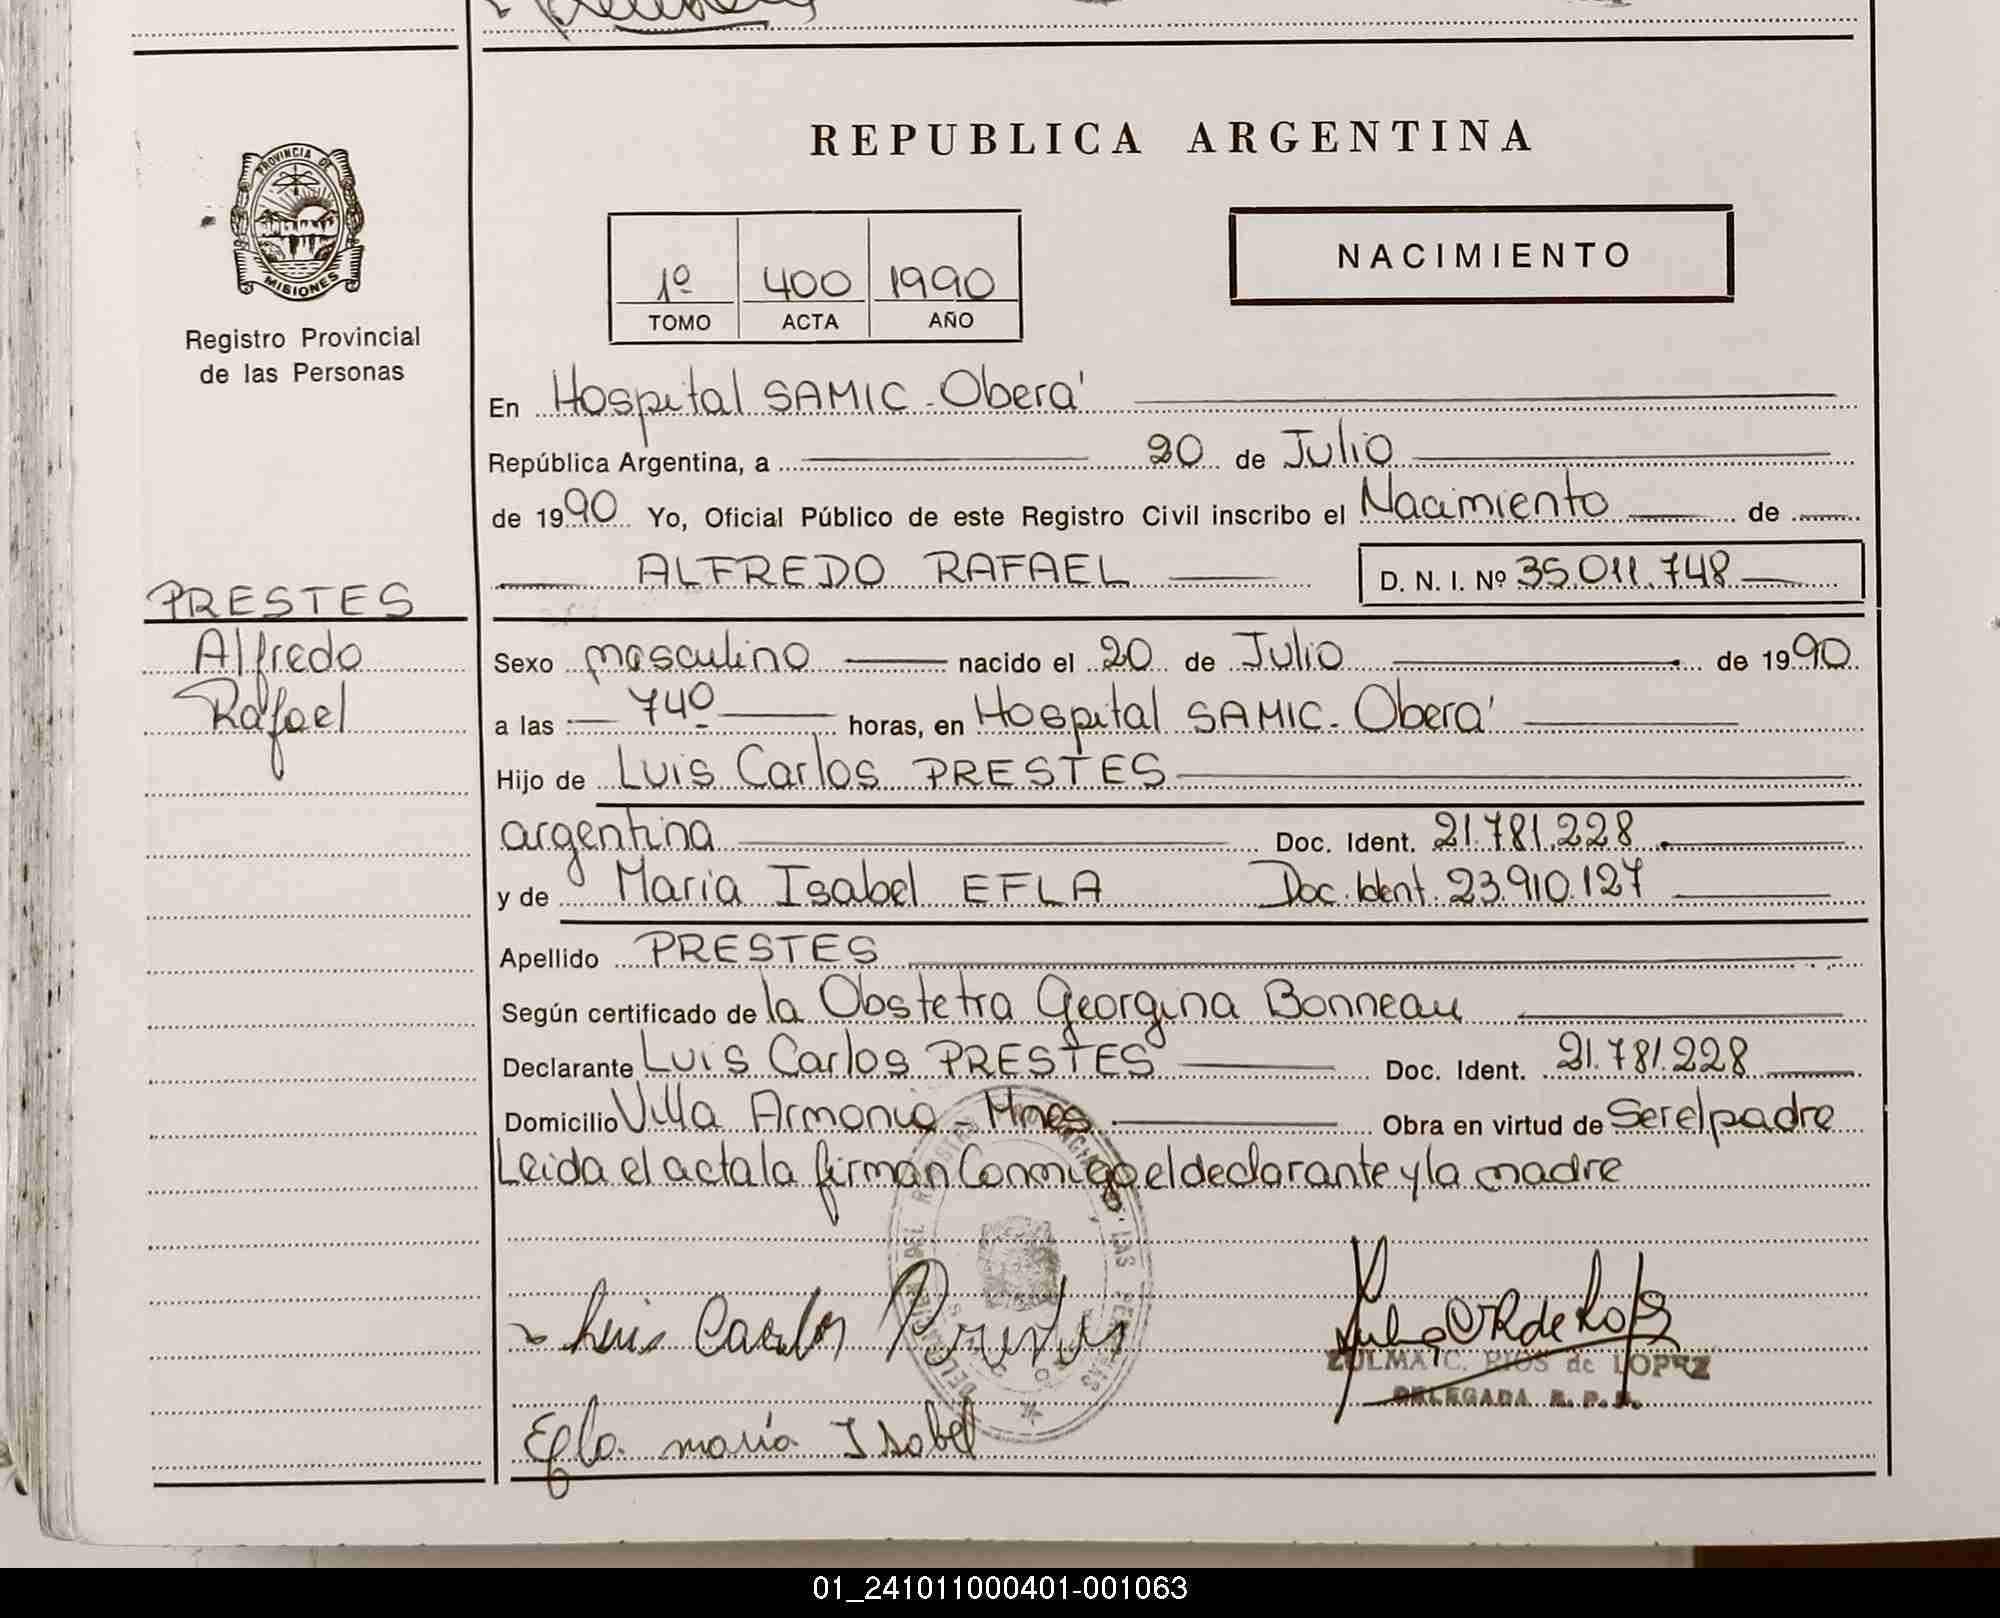 REPUBLICA ARGENTINA
PROVINCIA DE
MISIONES
Registro Provincial
de las Personas
1º 400 1990
TOMO ACTA AÑO
NACIMIENTO
En Hospital SAMIC - Oberá
República Argentina, a 20 de Julio
de 1990 Yo, Oficial Público de este Registro Civil inscribo el Nacimiento de
ALFREDO RAFAEL D. N. I. Nº 35.011.748
PRESTES
Alfredo
Rafael
Sexo masculino nacido el 20 de Julio de 1990
a las 7 40 horas, en Hospital SAMIC - Oberá
Hijo de Luis Carlos PRESTES
argentina Doc. Ident. 21.781.228
y de Maria Isabel EFLA Doc. Ident. 23.910.127
Apellido PRESTES
Según certificado de la Obstetra Georgina Bonneau
Declarante Luis Carlos PRESTES Doc. Ident. 21.781.228
Domicilio Villa Armonia - Mnes Obra en virtud de Ser el padre
Leida el acta la firman Conmigo el declarante y la madre
Luis Carlos Prestes
ZULMA C. RIOS de LOPEZ
DELEGADA R. P. P.
Efla maría Isabel
01_241011000401-001063